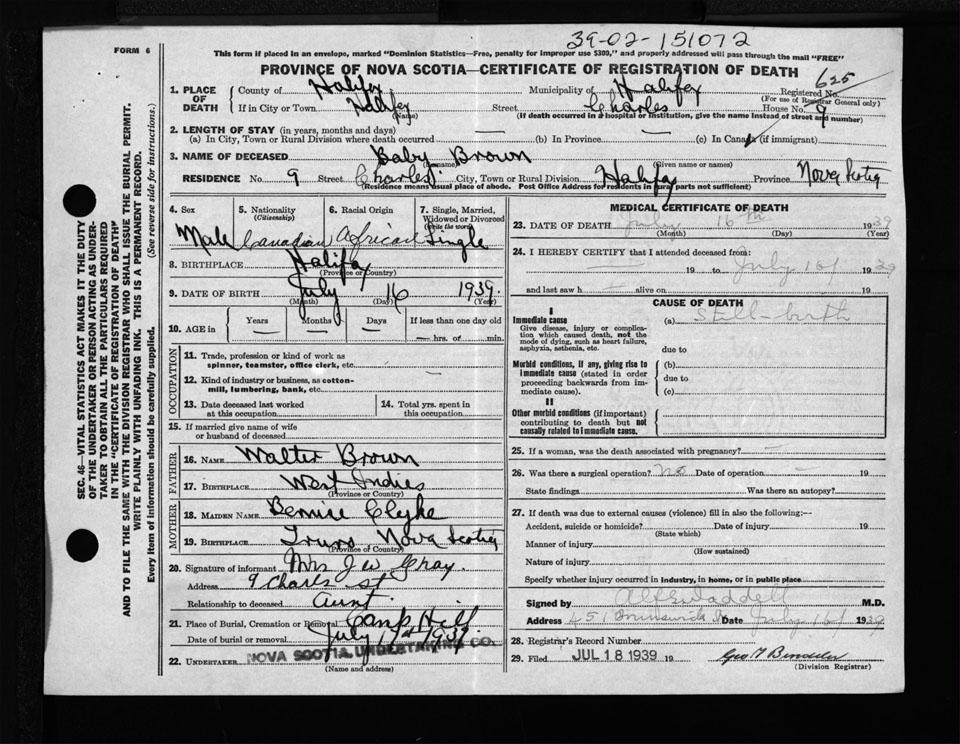 39-02-151072
FORM 6
This form if placed in an envelope, marked "Dominion Statistics—Free, penalty for improper use $300," and properly addressed will pass through the mail "FREE"
PROVINCE OF NOVA SCOTIA—CERTIFICATE OF REGISTRATION OF DEATH
625
1. PLACE OF DEATH
County of Halifax Municipality of Halifax Registered No.
(For use of Registrar General only)
If in City or Town Halifax Street Charles House No. 9
(Name) (If death occurred in a hospital or institution, give the name instead of street and number)
2. LENGTH OF STAY (in years, months and days)
(a) In City, Town or Rural Division where death occurred — (b) In Province — (c) In Canada (if immigrant)
3. NAME OF DECEASED Baby Brown
(Surname) (Given name or names)
RESIDENCE No. 9 Street Charles City, Town or Rural Division Halifax Province Nova Scotia
(Residence means usual place of abode. Post Office Address for residents in rural parts not sufficient)
4. Sex 5. Nationality (Citizenship) 6. Racial Origin 7. Single, Married, Widowed or Divorced (Write the word)
Male Canadian African Single
8. BIRTHPLACE Halifax
(Province or Country)
9. DATE OF BIRTH July 16 1939
(Month) (Day) (Year)
10. AGE in Years Months Days If less than one day old
— — — — hrs. or min.
OCCUPATION
11. Trade, profession or kind of work as spinner, teamster, office clerk, etc.
12. Kind of industry or business, as cotton-mill, lumbering, bank, etc. —
13. Date deceased last worked at this occupation 14. Total yrs. spent in this occupation
15. If married give name of wife or husband of deceased
FATHER
16. NAME Walter Brown
17. BIRTHPLACE West Indies
(Province or Country)
MOTHER
18. MAIDEN NAME Bernice Clyke
19. BIRTHPLACE Truro Nova Scotia
(Province or Country)
20. Signature of informant Mrs J W Gray.
Address 9 Charles St
Relationship to deceased Aunt
21. Place of Burial, Cremation or Removal Camp Hill
Date of burial or removal July 1939
22. UNDERTAKER NOVA SCOTIA UNDERTAKING CO.
(Name and address)
MEDICAL CERTIFICATE OF DEATH
23. DATE OF DEATH July 16th 1939
(Month) (Day) (Year)
24. I HEREBY CERTIFY that I attended deceased from:
— 19 to July 16 1939
and last saw h — alive on 19
CAUSE OF DEATH
I
Immediate cause (a) Still-birth
Give disease, injury or complication which caused death, not the mode of dying, such as heart failure, asphyxia, asthenia, etc.
due to
Morbid conditions, if any, giving rise to immediate cause (stated in order proceeding backwards from immediate cause).
(b)
due to
(c)
II
Other morbid conditions (if important) contributing to death but not causally related to immediate cause.
25. If a woman, was the death associated with pregnancy? —
26. Was there a surgical operation? no Date of operation — 19
State findings Was there an autopsy?
27. If death was due to external causes (violence) fill in also the following:—
Accident, suicide or homicide? Date of injury 19
(State which)
Manner of injury
(How sustained)
Nature of injury
Specify whether injury occurred in industry, in home, or in public place
Signed by Waddell M.D.
Address 451 Brunswick St Date July 16 1939
28. Registrar's Record Number
29. Filed JUL 18 1939 19
(Division Registrar)
SEC. 46—VITAL STATISTICS ACT MAKES IT THE DUTY
OF THE UNDERTAKER OR PERSON ACTING AS UNDER-
TAKER TO OBTAIN ALL THE PARTICULARS REQUIRED
IN THE "CERTIFICATE OF REGISTRATION OF DEATH"
AND TO FILE THE SAME WITH THE DIVISION REGISTRAR WHO SHALL ISSUE THE BURIAL PERMIT.
WRITE PLAINLY WITH UNFADING INK. THIS IS A PERMANENT RECORD.
Every item of information should be carefully supplied. (See reverse side for instructions.)